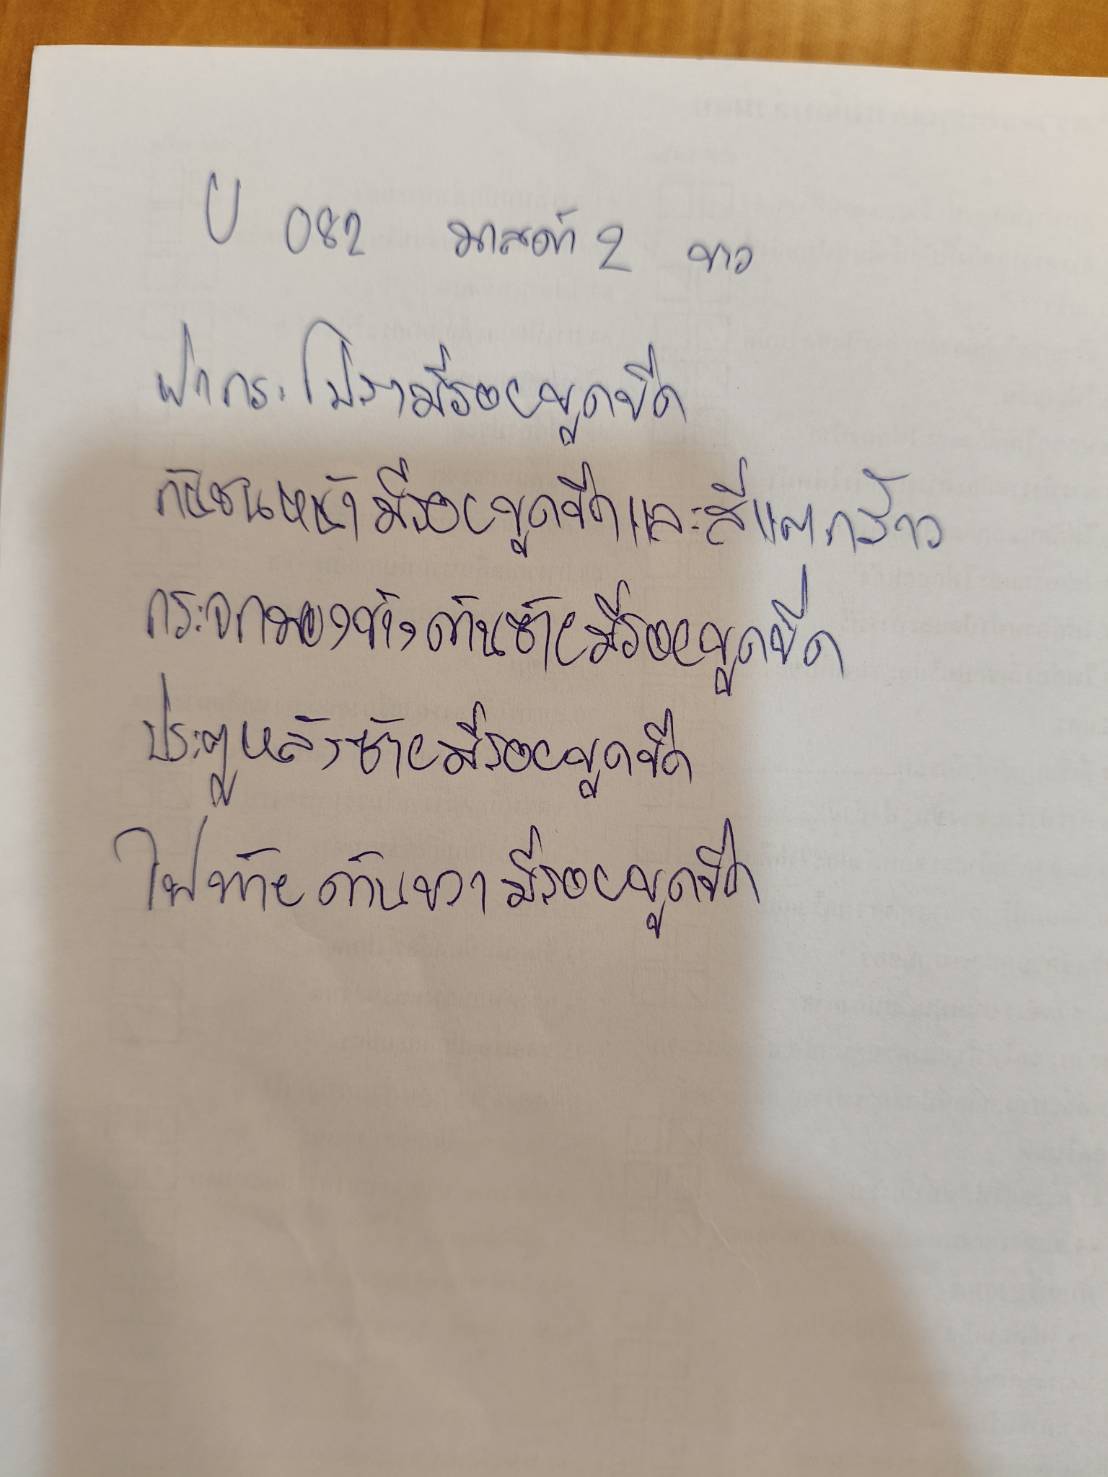 U 082 มาสด้า 2 ขาว
ฝากระโปรงมีรอยขูดขีด
กันชนหน้ามีรอยขูดขีดและสีแตกร้าว
กระจกมองข้างด้านซ้ายมีรอยขูดขีด
ประตูหลังซ้ายมีรอยขูดขีด
ไฟท้ายด้านขวามีรอยขูดขีด